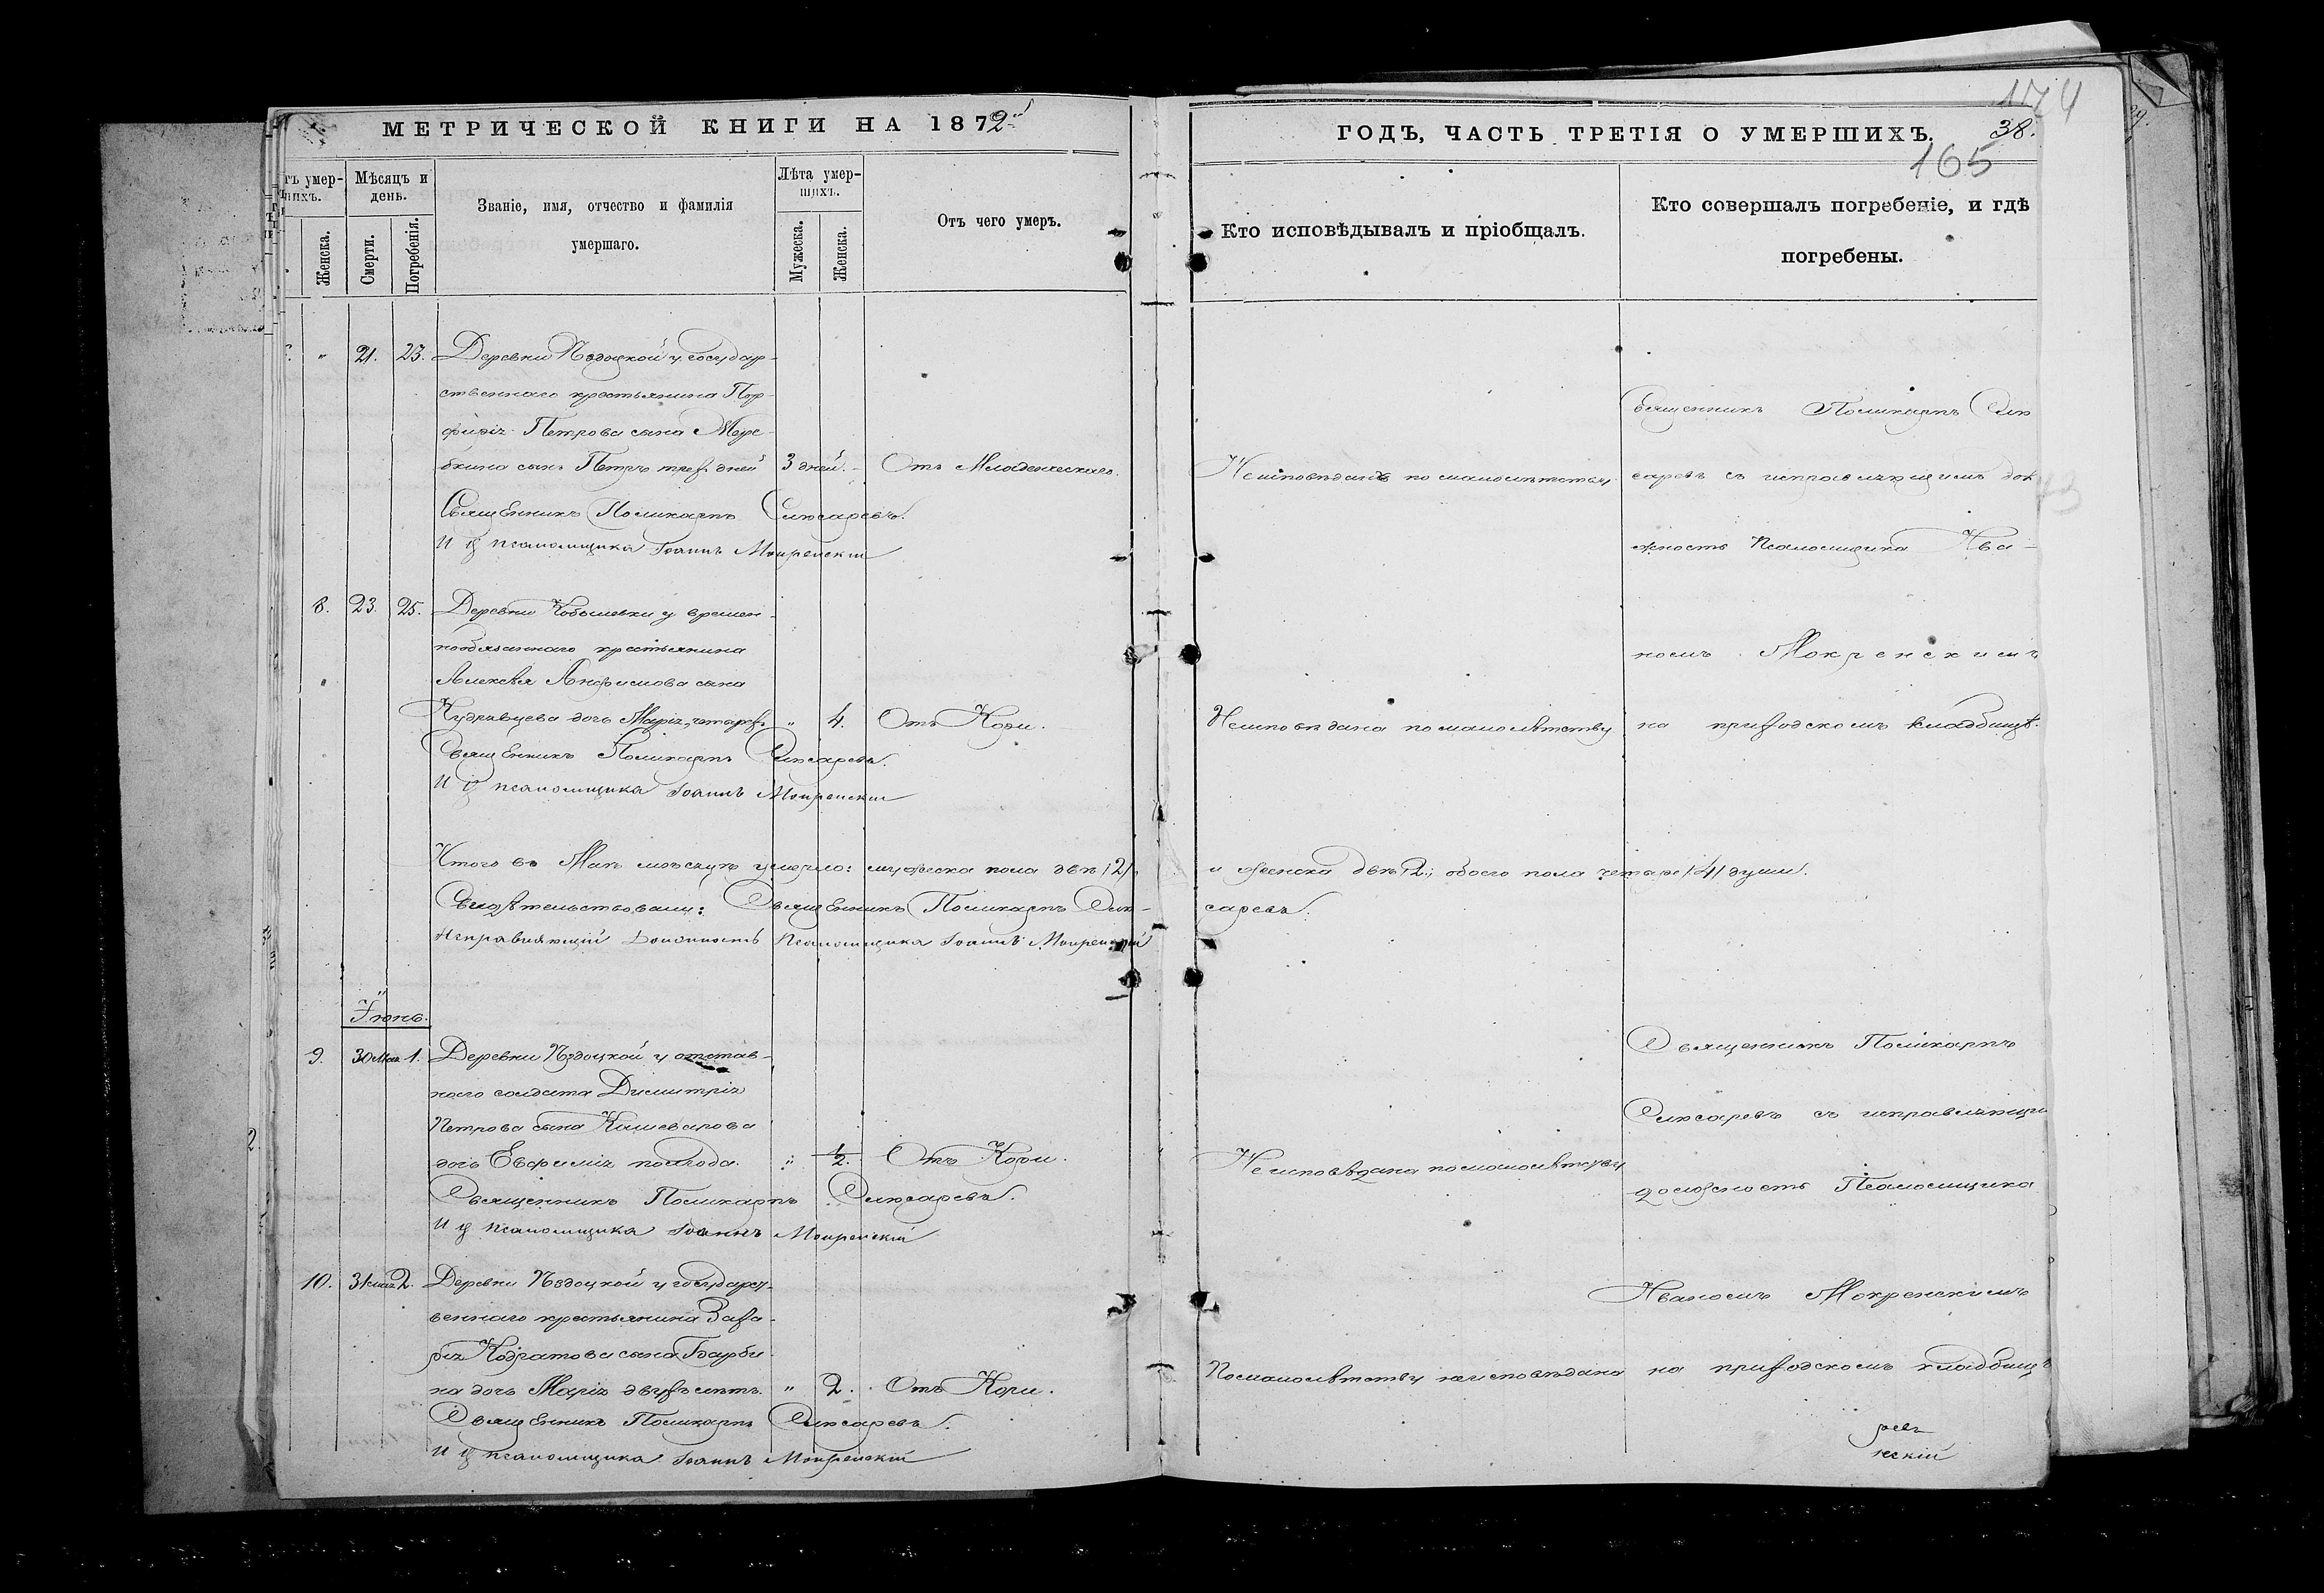 МЕТРИЧЕСКОЙ КНИГИ НА 1872й
ГОДЪ, ЧАСТЬ ТРЕТІЯ О УМЕРШИХЪ.
174
38.
165
Мѣсяцъ и день.
Женска.
Смерти.
Погребенія.
Званіе, имя, отчество и фамилія
умершаго.
Лѣта умер-
шихъ.
Мужеска.
Женска.
Отъ чего умеръ.
Кто исповѣдывалъ и пріобщалъ.
Кто совершалъ погребеніе, и гдѣ
погребены.
„ 21. 23. Деревни у государ-
ственнаго крестьянина Пор-
фирія Петрова сына
сынъ Петръ трехъ дней 3 дней. Отъ Младенческаго.
Священникъ Поликарпъ Слюсаревъ.
И д псаломщика Іоаннъ Мокренскій
Неисповѣданъ по малолѣтству
Священникъ Поликарпъ Слю
саревъ съ исправляющимъ дол
жность Псаломщика Ива-
номъ Мокренскимъ
на приходскомъ кладбищѣ.
8. 23. 25. Деревни у времен-
нообязаннаго крестьянина
Алексѣя Анфимова сына
Кудрявцева дочь Марія, четырехъ „ 4. Отъ Кори.
Священникъ Поликарпъ Слюсаревъ.
И д псаломщика Іоаннъ Мокренскій
Неисповѣдана по малолѣтству
Итого въ Маѣ мѣсяцѣ умерло: мужеска пола двѣ /2/ и женска двѣ /2/; обоего пола четыре /4/ души.
Свидѣтельствовали: Священникъ Поликарпъ Слю-саревъ.
Исправляющій должность псаломщика Іоаннъ Мокренскій
Іюнь.
9. 30 Мая 1. Деревни у отстав-
ного солдата Димитрія
Петрова сына Кашеварова
дочь Евфимія полгода. „ 1/2. Отъ Кори.
Священникъ Поликарпъ Слюсаревъ.
И д псаломщика Іоаннъ Мокренскій
Неисповѣдана по малолѣтству
Священникъ Поликарпъ
Слюсаревъ съ исправляющи
должность Псаломщика
Иваномъ Мокренскимъ
на приходскомъ кладбищѣ
10. 31 мая 2. Деревни у государст-
веннаго крестьянина Заха-
рія Кодратова сына
на дочь Марія двухъ лѣтъ. „ 2. Отъ Кори.
Священникъ Поликарпъ Слюсаревъ.
И д псаломщика Іоаннъ Мокренскій
По малолѣтству неисповѣдана
ревъ
нскій